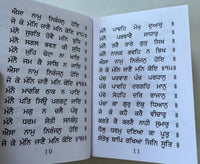 ਐਸਾ ਨਾਮੁ ਨਿਰੰਜਨੁ ਹੋਇ
ਜੇ ਕੋ ਮੰਨਿ ਜਾਣੈ ਮਨਿ ਕੋਇ
ਮੰਨੈ ਸੁਰਤਿ ਹੋਵੈ ਮਨਿ ਬੁਧਿ
ਮੰਨੈ ਸਗਲ ਭਵਣ ਕੀ ਸੁਧਿ
ਮੰਨੈ ਮੁਹਿ ਚੋਟਾ ਨਾ ਖਾਇ
ਮੰਨੈ ਜਮ ਕੈ ਸਾਥਿ ਨ ਜਾਇ
ਐਸਾ ਨਾਮੁ ਨਿਰੰਜਨੁ ਹੋਇ
ਜੇ ਕੋ ਮੰਨਿ ਜਾਣੈ ਮਨਿ ਕੋਇ
ਮੰਨੈ ਮਾਰਗਿ ਠਾਕ ਨ ਪਾਇ
ਮੰਨੈ ਪਤਿ ਸਿਉ ਪਰਗਟੁ ਜਾਇ
ਮੰਨੈ ਮਗੁ ਨ ਚਲੈ ਪੰਥੁ
ਮੰਨੈ ਧਰਮ ਸੇਤੀ ਸਨਬੰਧੁ
ਐਸਾ ਨਾਮੁ ਨਿਰੰਜਨੁ ਹੋਇ
ਜੇ ਕੋ ਮੰਨਿ ਜਾਣੈ ਮਨਿ ਕੋਇ
10
ਮੰਨੈ ਪਾਵਹਿ ਮੋਖੁ ਦੁਆਰੁ
ਮੰਨੈ ਪਰਵਾਰੈ ਸਾਧਾਰੁ
ਮੰਨੈ ਤਰੈ ਤਾਰੇ ਗੁਰੁ ਸਿਖ
ਮੰਨੈ ਨਾਨਕ ਭਵਹਿ ਨ ਭਿਖ
ਐਸਾ ਨਾਮੁ ਨਿਰੰਜਨੁ ਹੋਇ
ਜੇ ਕੋ ਮੰਨਿ ਜਾਣੈ ਮਨਿ ਕੋਇ
ਪੰਚ ਪਰਵਾਣ ਪੰਚ ਪਰਧਾਨੁ
ਪੰਚੇ ਪਾਵਹਿ ਦਰਗਹਿ ਮਾਨੁ
ਪੰਚੇ ਸੋਹਹਿ ਦਰਿ ਰਾਜਾਨੁ
ਪੰਚਾ ਕਾ ਗੁਰੁ ਏਕੁ ਧਿਆਨੁ
ਜੇ ਕੋ ਕਹੈ ਕਰੈ ਵੀਚਾਰੁ
ਕਰਤੇ ਕੈ ਕਰਣੈ ਨਾਹੀ ਸੁਮਾਰੁ
ਧੌਲੁ ਧਰਮੁ ਦਇਆ ਕਾ ਪੂਤੁ
ਸੰਤੋਖੁ ਥਾਪਿ ਰਖਿਆ ਜਿਨਿ ਸੂਤਿ
11